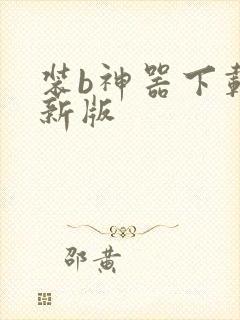 装b神器下载
新版
邵黄